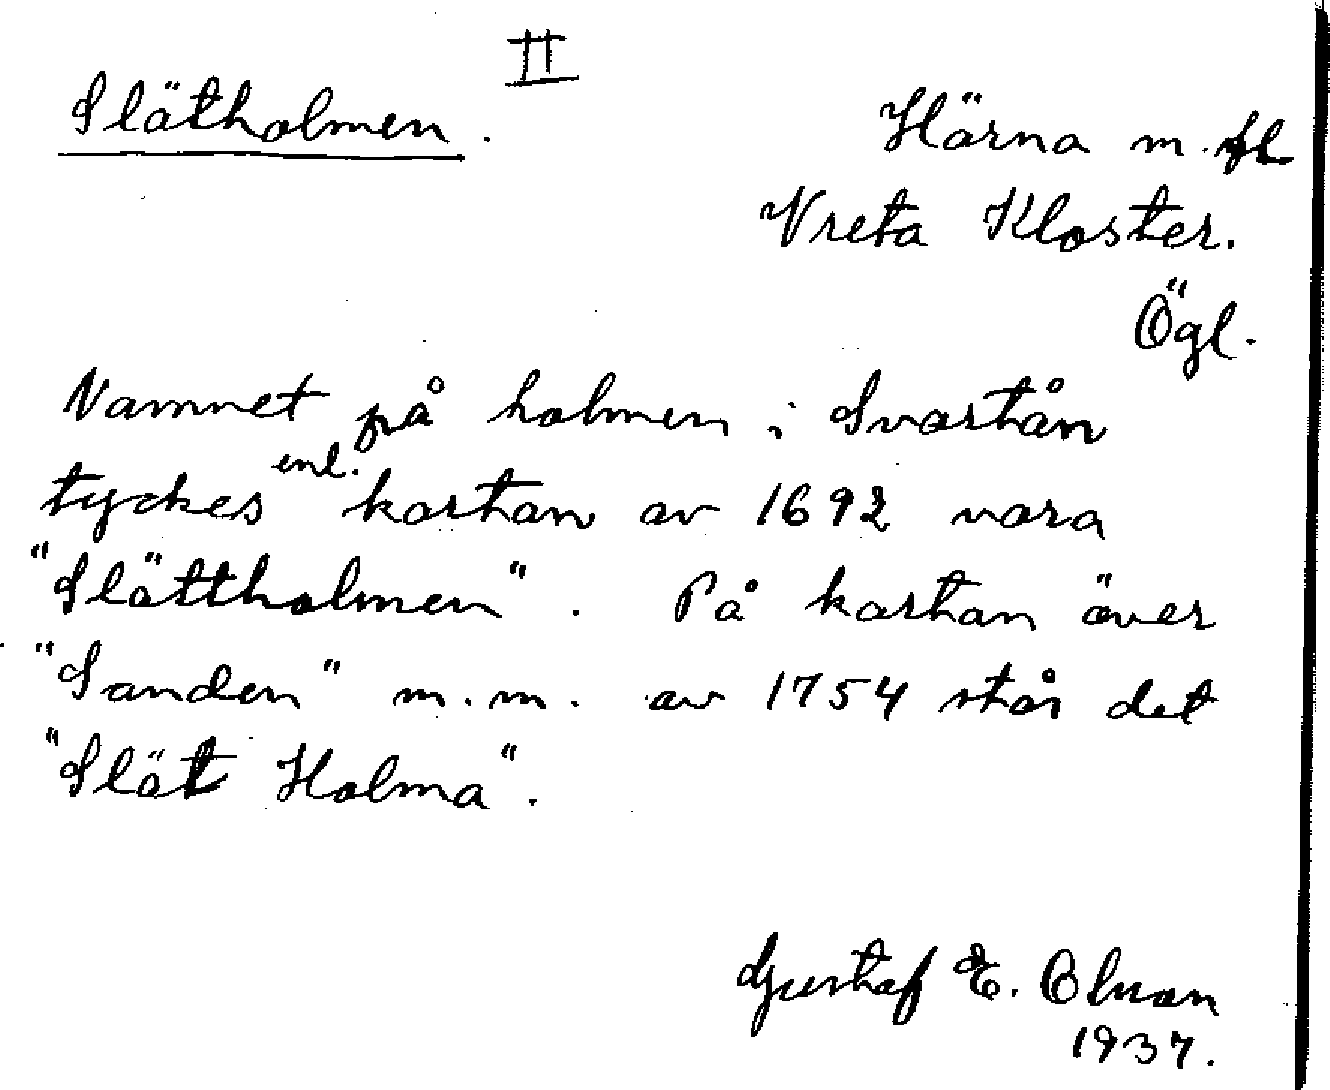 II
Slätholmen.
Härna m.fl
Vreta Kloster.
Ögl.
Namnet på holmen i Svartån
tyckes enl. kartan av 1692 vara
"Slättholmen". På kartan över
"Sanden" m.m. av 1754 står det
"Slät Holma".
Gustaf E. Olson
1937.